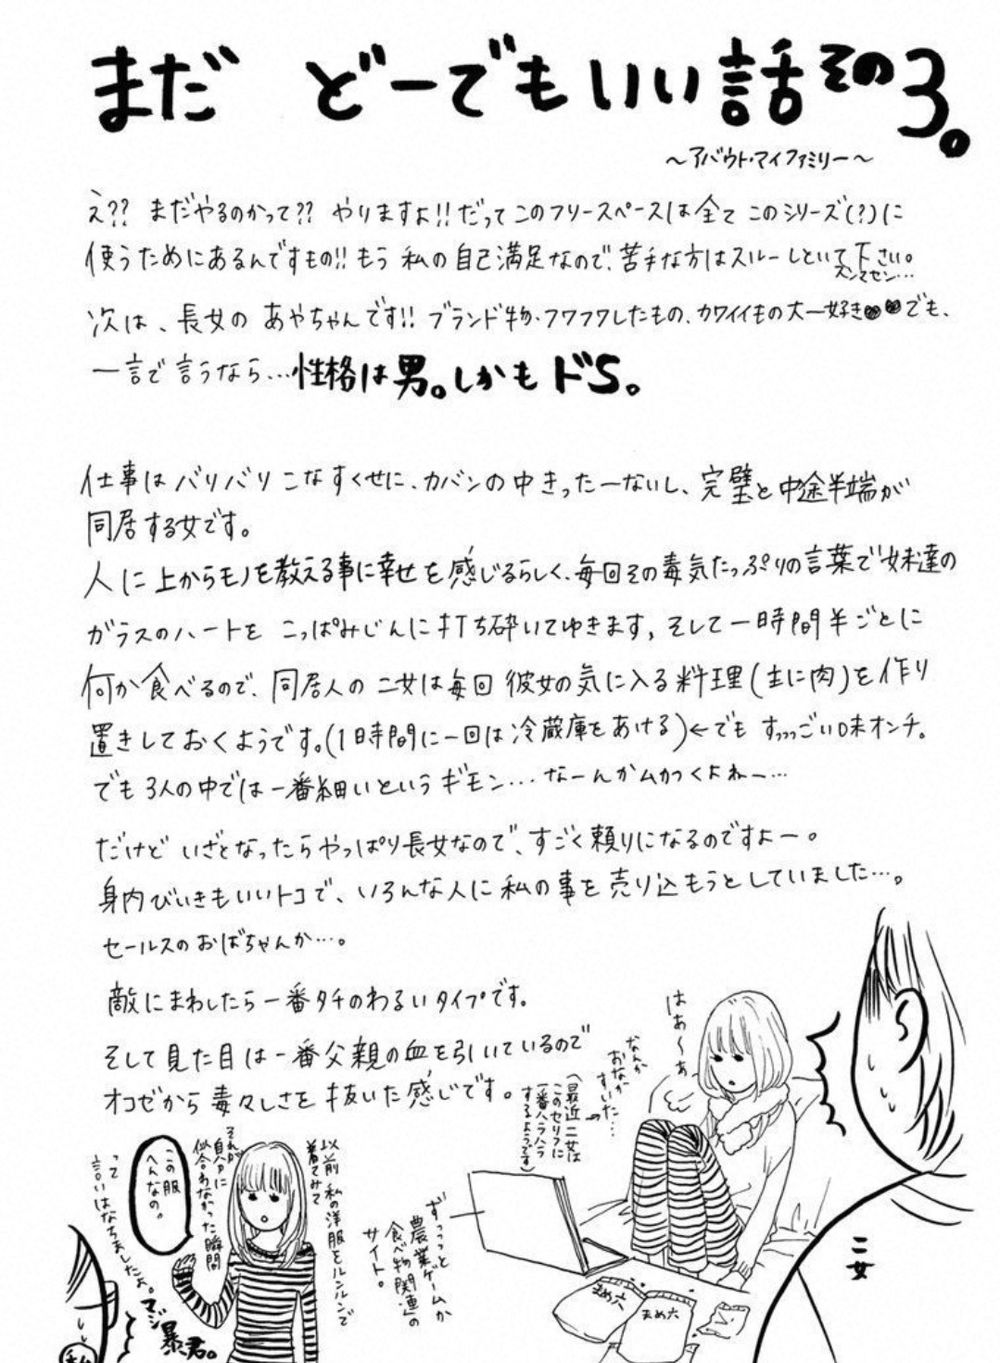 まだ どーでもいい話その3。
～アバウト・マイファミリー～
え?? まだやるのかって?? やりますよ!!だってこのフリースペースは全てこのシリーズ(?)に
使うためにあるんですもの!!もう私の自己満足なので、苦手な方はスルーしといて下さい。
スンマセン…
次は、長女の あやちゃんです!! ブランド物・フワフワしたもの、カワイイもの大一好き♥♥でも、
一言で言うなら…性格は男。しかもドS。
仕事はバリバリこなすくせに、カバンの中きったーないし、完璧と中途半端が
同居する女です。
人に上からモノを教える事に幸せを感じるらしく、毎回その毒気たっぷりの言葉で妹達の
ガラスのハートを こっぱみじんに打ち砕いてゆきます,そして一時間半ごとに
何か食べるので、同居人の二女は毎回 彼女の気に入る料理(主に肉)を作り
置きしておくようです。(1時間に一回は冷蔵庫をあける)←でも すっっっごい味オンチ。
でも3人の中では一番細いというギモン…なーんかムカつくよねー…
だけど いざとなったらやっぱり長女なので、すごく頼りになるのですよー。
身内びいきもいいトコで、いろんな人に私の事を売り込もうとしていました…。
セールスのおばちゃんか…。
敵にまわしたら一番タチのわるいタイプです。
そして見た目は一番父親の血を引いているので
オコゼから毒々しさを抜いた感じです。
はぁ～ぁ
なんか
おなか
すいた…
(最近二女は
このセリフに
一番ハラハラ
するようです)
ずっっっと
農業ゲームか
食べ物関連の
サイト。
まめ六
まめ六
二女
以前私の洋服をルンルンで
着てみて
それが
自分に
似合わなかった瞬間
この服
へんなの。
って
言いはなちましたよ。マジ
暴君。
私